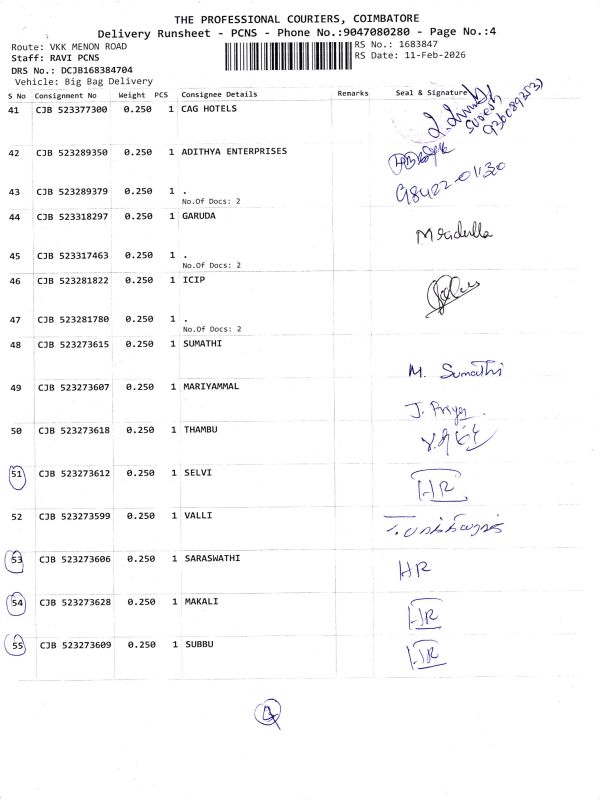 THE PROFESSIONAL COURIERS, COIMBATORE
Delivery Runsheet - PCNS - Phone No.:9047080280 - Page No.:4
Route: VKK MENON ROAD
RS No.: 1683847
Staff: RAVI PCNS
RS Date: 11-Feb-2026
DRS No.: DCJB168384704
Vehicle: Big Bag Delivery
S No Consignment No Weight PCS Consignee Details Remarks Seal & Signature
41 CJB 523377300 0.250 1 CAG HOTELS
42 CJB 523289350 0.250 1 ADITHYA ENTERPRISES
43 CJB 523289379 0.250 1 .
98422-01130
No.Of Docs: 2
44 CJB 523318297 0.250 1 GARUDA
Mridulla
45 CJB 523317463 0.250 1 .
No.Of Docs: 2
46 CJB 523281822 0.250 1 ICIP
47 CJB 523281780 0.250 1 .
No.Of Docs: 2
48 CJB 523273615 0.250 1 SUMATHI
M. Sumathi
49 CJB 523273607 0.250 1 MARIYAMMAL
J. Priya
50 CJB 523273618 0.250 1 THAMBU
51 CJB 523273612 0.250 1 SELVI
HR
52 CJB 523273599 0.250 1 VALLI
53 CJB 523273606 0.250 1 SARASWATHI
HR
54 CJB 523273628 0.250 1 MAKALI
HR
55 CJB 523273609 0.250 1 SUBBU
HR